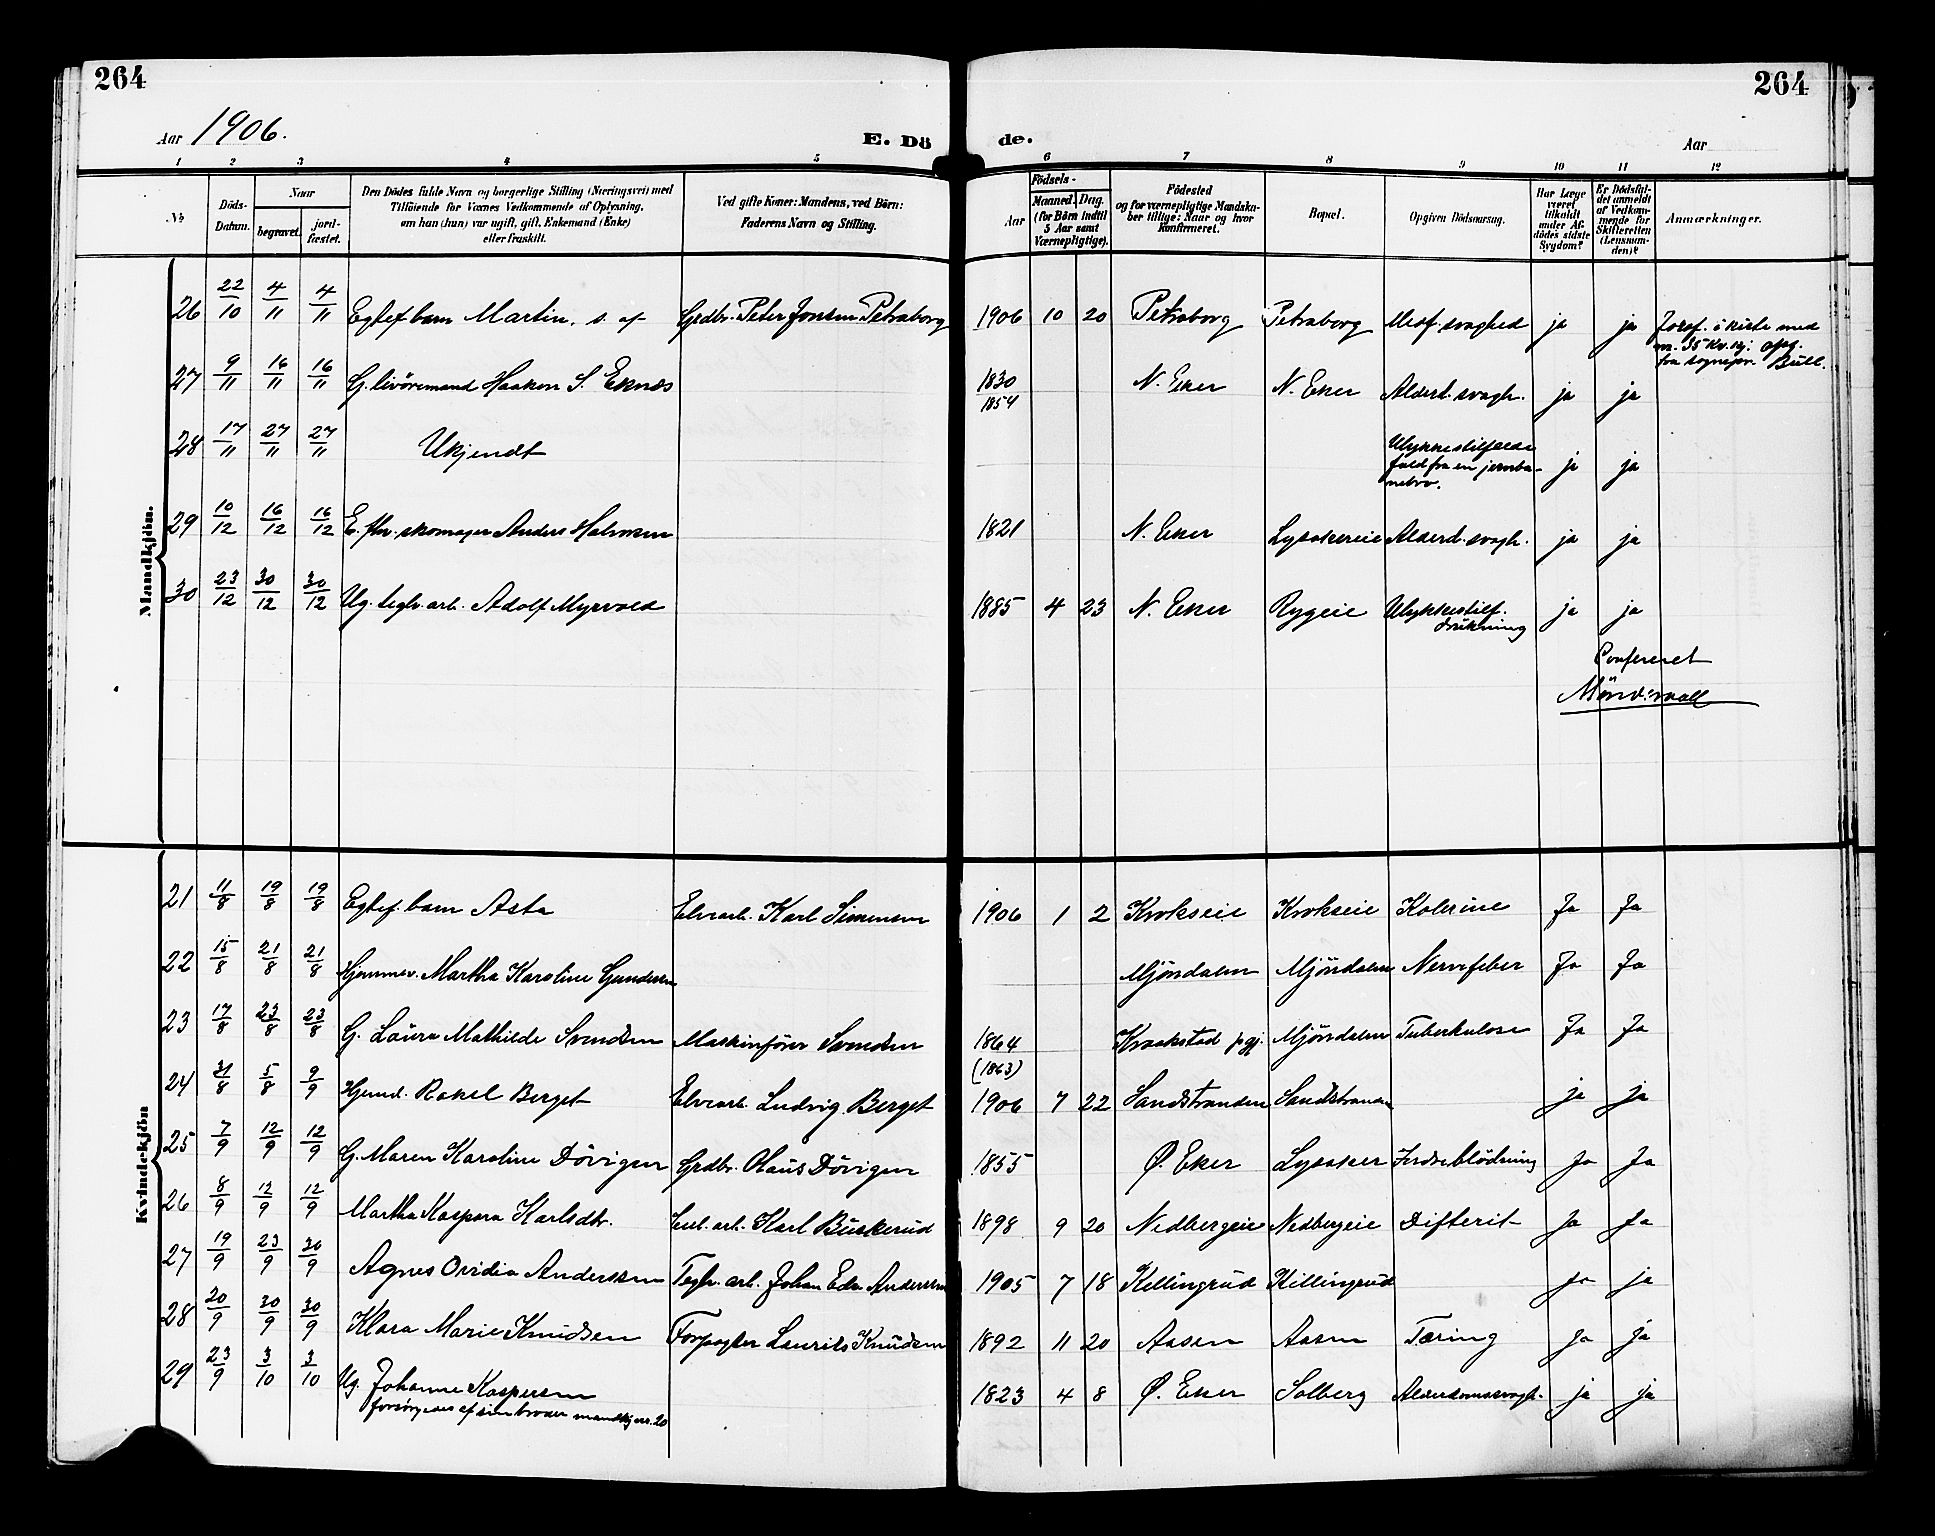 264
264
Aar 1906.
E. Dö
de.
Aar
1 2 3 4 5 6 7 8 9 10 11 12
No
Döds-Datum.
Naar
begravet.
jordfæstet.
Den Dödes fulde Navn og borgerlige Stilling (Næringsvei) med
Tilföiende for Voxnes Vedkommende af Oplysning,
om han (hun) var ugift, gift, Enkemand (Enke)
eller fraskilt.
Ved gifte Koner: Mandens, ved Börn:
Faderens Navn og Stilling.
Födsels-
Aar
Maaned. Dag.
(for Börn indtil
5 Aar samt
Værnepligtige).
Födested
og for værnepligtige Mandska-
ber tillige: Naar og hvor
konfirmeret.
Bopæl.
Opgiven Dödsaarsag.
Har Læge
været
tilkaldt
under Af-
dödes sidste
Sygdom?
Er Dödsfal-
det anmeldt
af Vedkom-
mende for
Skifteretten
(Lensman-
den)?
Anmærkninger.
Mandkjön.
26 22/10 4/11 4/11 Egtef. barn Martin, s. af Grdbr. Peter Jonsen Petraborg 1906 10 20 Petraborg Petraborg Medf. svaghed ja ja
i kiste med
27 9/11 16/11 16/11 G. livöremand Haakon S. Eknæs 1830 N. Eker N. Eker Alderd. svagh. ja ja
1854
28 17/11 27/11 27/11 Ukjendt Ulykkestilfælde ja ja
fald fra en jernba-
nebro.
29 10/12 16/12 16/12 E. fhv. skomager Anders Halvorsen 1821 N. Eker Lysakereie Alderd. svagh. ja ja
30 23/12 30/12 30/12 Ug. teglv. arb. Adolf Myrvold 1885 4 23 N. Eker Rygeie Ulykkestilf. ja ja
drukning
Confereret
Kvindekjön
21 11/8 19/8 19/8 Egtef. barn Asta Elvearb. Karl Simensen 1906 1 2 Krokseie Krokseie Kolerine Ja Ja
22 15/8 21/8 21/8 Hjemmev. Martha Karoline Gundersen Mjöndalen Mjöndalen Nervefeber Ja Ja
23 17/8 23/8 23/8 G. Laura Mathilde Svendsen Maskinförer Svendsen 1864 Kraakstad pgj. Mjöndalen Tuberkulose Ja Ja
(1863)
24 31/8 5/8 9/9 Hjemd. Rakel Berget Elvearb. Ludvig Berget 1906 7 22 Sandstranden Sandstranden ja ja
25 7/9 12/9 12/9 G. Maren Karoline Dövigen Grdbr. Olaus Dövigen 1855 Ø. Eker Lysaker Indreblödning Ja Ja
26 8/9 12/9 12/9 Martha Kaspara Karlsdtr. Cel. arb. Karl Buskerud 1898 9 20 Nedbergeie Nedbergeie Difterit Ja Ja
27 19/9 23/9 30/9 Agnes Ovidia Anderssen Teglv. arb. Johan Edv. Anderssen 1905 7 18 Killingrud Killingrud ja ja
28 20/9 30/9 30/9 Klara Marie Knudsen Forpagter Laurits Knudsen 1892 11 20 Aasen Aasen Tæring ja ja
29 23/9 3/10 3/10 Ug. Johanne Kaspersen 1823 4 8 Ø. Eker Solberg Alderdomssvagh. ja ja
forsörgedes af sin broder mandkj. nr. 20